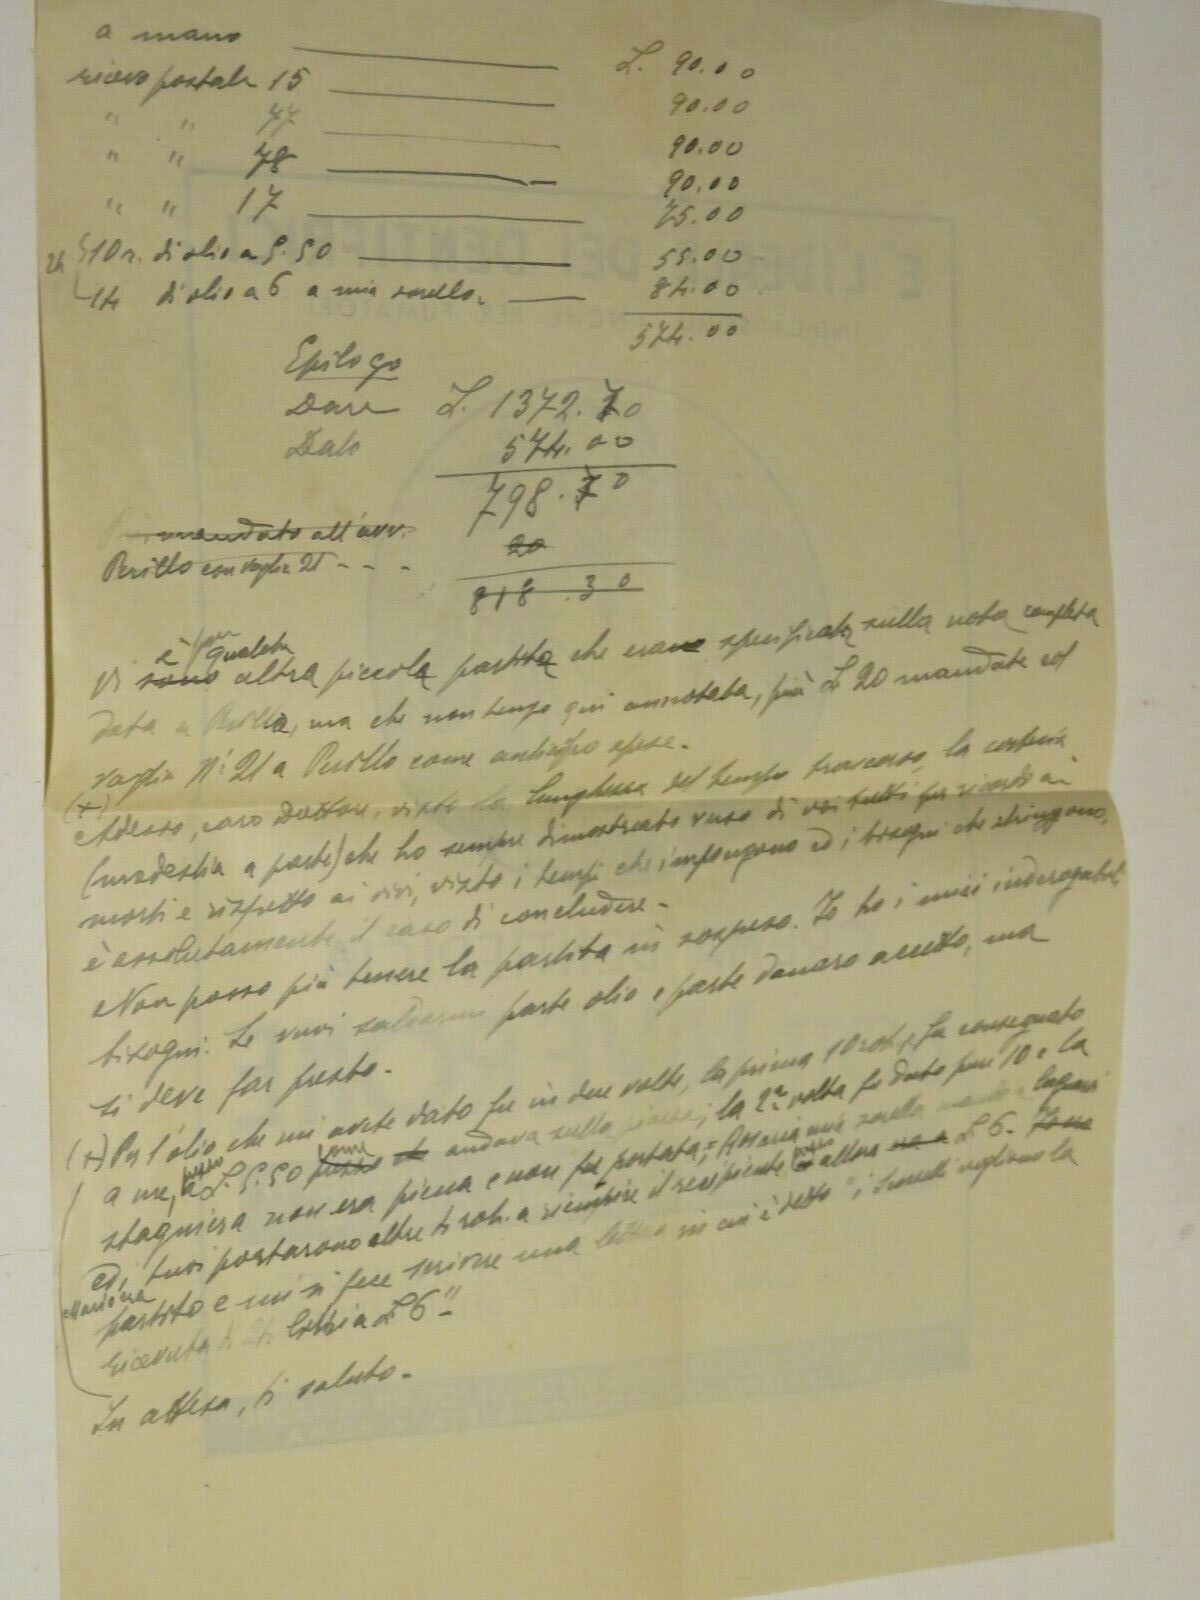 a mano L. 90.00
ricevo postale 15 90.00
" " 77 90.00
" " 78 90.00
" " 17 75.00
24 10 r. di olio a 5.50 55.00
14 di olio a 6 a mia sorella 84.00
574.00
Epilogo
Dare L. 1372.70
Dato 574.00
798.70
mandato all'avv. 20
Perillo con vaglia 21 - - - 818.30
Vi è qualche sono altra piccola partita che erano specificata sulla nota completa
data a Perillo, ma che non tengo qui annotata, più L 20 mandate col
vaglia N. 21 a Perillo come anticipo spese.
(+)
Adesso, caro Dottore, visto la lunghezza del tempo trascorso, la cortesia
(modestia a parte) che ho sempre dimostrato verso di voi tutti per ricordi ai
morti e rispetto ai vivi, visto i tempi che impongono ed i bisogni che stringono,
è assolutamente il caso di concludere -
Non posso più tenere la partita in sospeso. Io ho i miei inderogabili
bisogni. Se vuoi saldarmi parte olio e parte danaro accetto, ma
si deve far presto.
(+) Per l'olio che mi avete dato fu in due volte, la prima 10 rot. fu consegnato
a me, a L. 5.50 prezzo che andava sulla piazza; la 2ª volta fu dato pure 10 e la
stagniera non era piena e non fu portata; Rosaria mia sorella mandò a lagnarsi
ed i tuoi portarono altre 4 rot. a riempire il recipiente allora era a L 6.
partito e mi si fece scrivere una lettera in cui è detto "i fratelli vogliono la
ricevuta di 24 litri a L 6" -
In attesa, ti saluto -